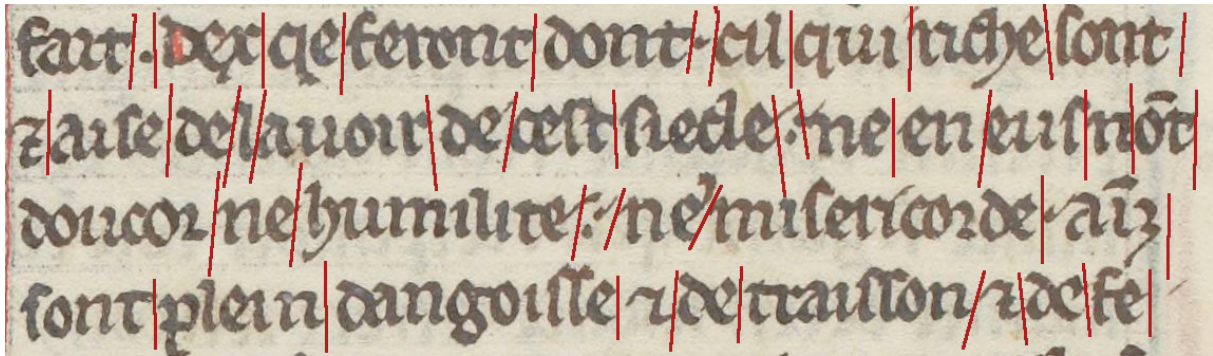 fait . dex qe feront dont cil qui riche sont
⁊ aise de lauoir de cest siecle . ne en eus nōt
doucor ne humilite . ne misericorde . aīz
sont plein dangoisse . ⁊ de traisson . ⁊ de fe